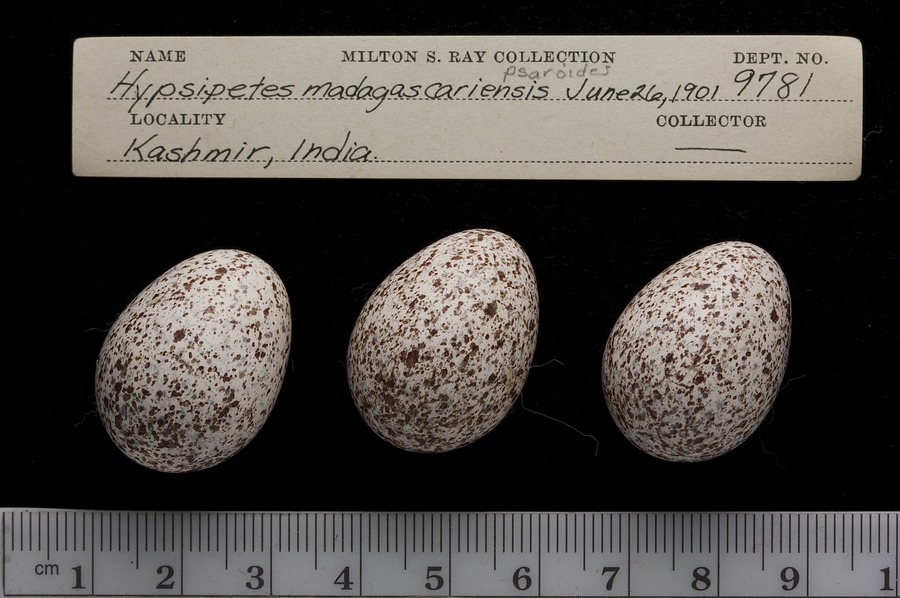 NAME MILTON S. RAY COLLECTION DEPT. NO.
psaroides
Hypsipetes madagascariensis June 26, 1901 9781
LOCALITY COLLECTOR
Kashmir, India.
cm 1 2 3 4 5 6 7 8 9 1